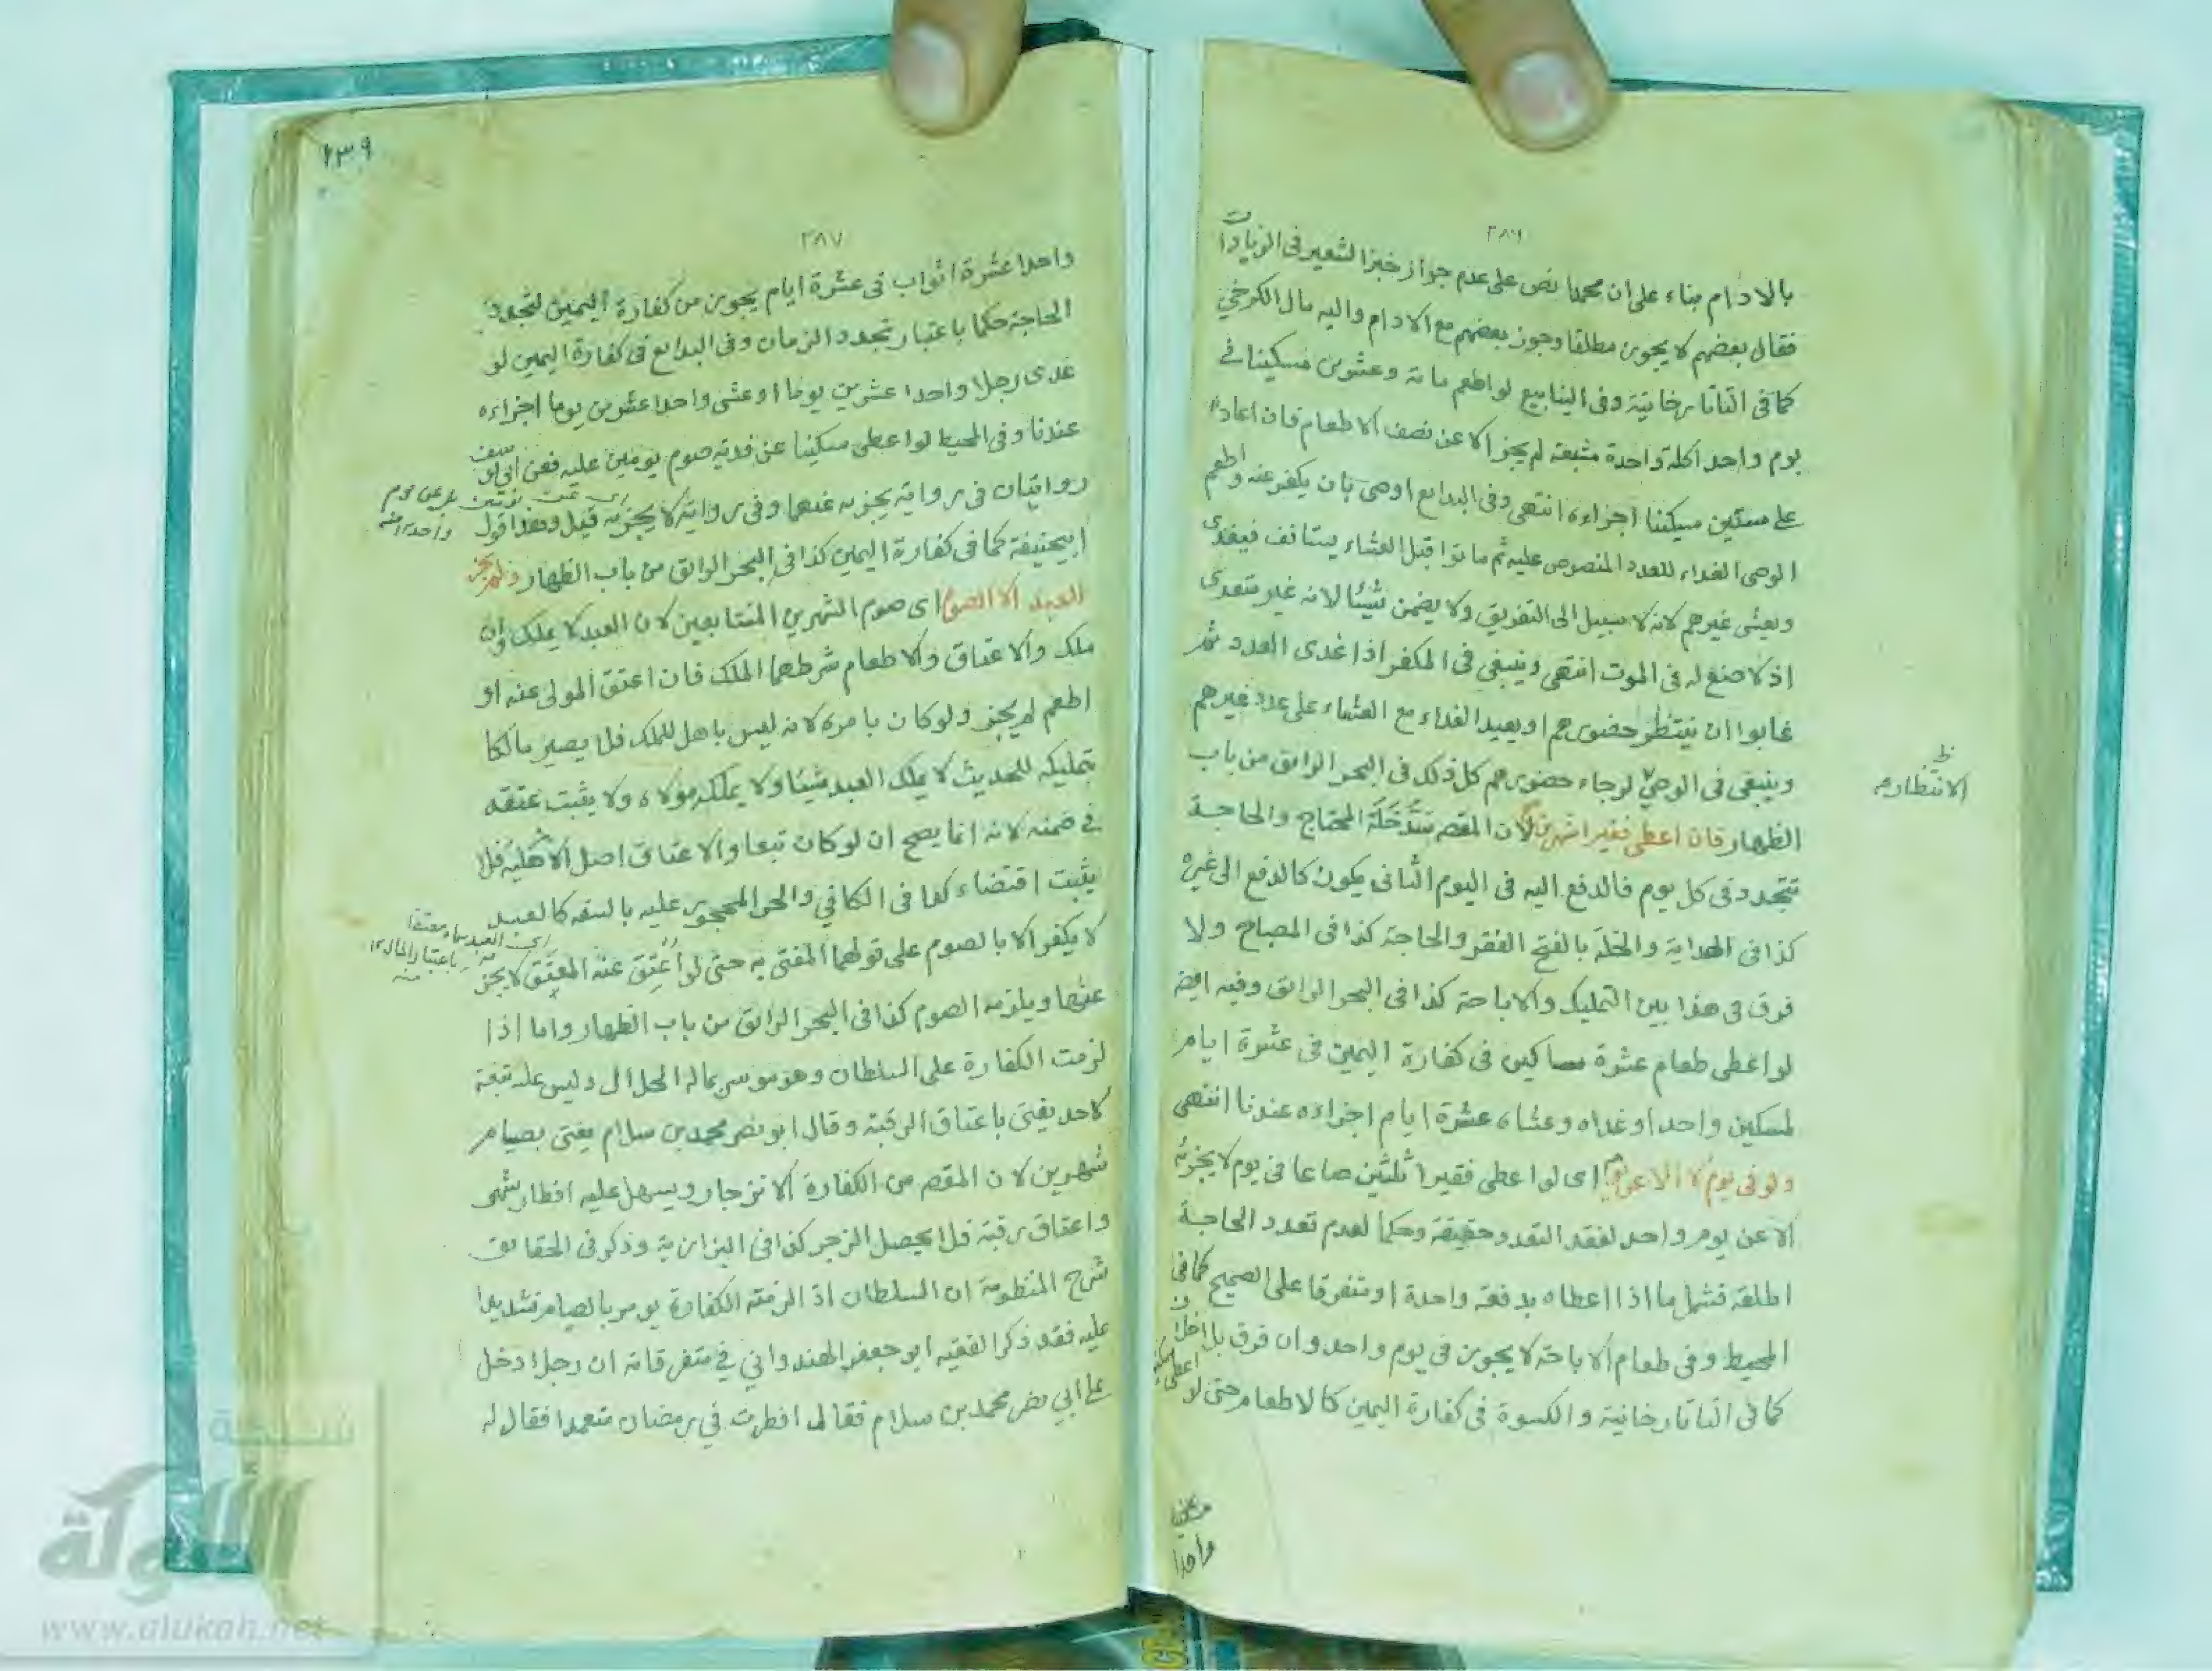 ٢٨٦
بالادام بناء على ان محمدا نص على عدم جواز خبز الشعير فى الزيادات
فقال بعضهم لا يجوز مطلقا وجوز بعضهم مع الادام واليه مال الكرخي
كما فى التاتارخانية وفى الينابيع لو اطعم مائة وعشرين مسكينا في
يوم واحد اكلة واحدة مشبعة لم يجز الا عن نصف الاطعام فان اعاد
على ستين مسكينا اجزاءه انتهى وفى البدايع اوصى بان يكفر عنه واطعم
الوصى الغداء للعدد المنصوص عليه ثم ماتوا قبل العشاء يستانف فيغدى
ويعشى غيرهم لانه لا سبيل الى التفريق ولا يضمن شيئا لانه غير متعدى
اذ لا صنع له فى الموت انتهى وينبغى فى المكفر اذا غدى العدد ثم
غابوا ان ينتظر حضورهم او يعيد الغداء مع العشاء على عدد غيرهم
وينبغى فى الوصى لرجاء حضورهم كل ذلك فى البحر الرائق من باب
الانتظار
الظهار فان اعطى فقيرا شهرين لان المقص سد خلة المحتاج والحاجة
تتجدد فى كل يوم فالدفع اليه فى اليوم الثانى يكون كالدفع الى غيره
كذا فى الهداية والخلة بالفتح الفقر والحاجة كذا فى المصباح ولا
فرق فى هذا بين التمليك والاباحة كذا فى البحر الرائق وفيه ايضا
لو اعطى طعام عشرة مساكين فى كفارة اليمين فى عشرة ايام
لمسكين واحد او غداه وعشاه عشرة ايام اجزاءه عندنا انتهى
ولو فى يوم لا الا عن يومه اى لو اعطى فقيرا ثلثين صاعا فى يوم لا يجزئه
الا عن يوم واحد لفقد التعدد حقيقة وحكما لعدم تعدد الحاجة
اطلقه فشمل ما اذا اعطاه بدفعة واحدة او متفرقا على الصحيح كما فى
المحيط وفى طعام الاباحة لا يجوز فى يوم واحد وان فرق بلا خلاف
كما فى التاتارخانية والكسوة فى كفارة اليمين كالاطعام حتى لو اعطى مسكينا
مسكينا
واحدا
٢٣٩
٢٨٧
واحدا عشرة اثواب فى عشرة ايام يجوز من كفارة اليمين لتجدد
الحاجة حكما باعتبار تجدد الزمان وفى البدايع فى كفارة اليمين لو
غدى رجلا واحدا عشرين يوما او عشى واحدا عشرين يوما اجزاءه
عندنا وفى المحيط لو اعطى مسكينا عن فدية صوم يومين عليه فعن ابى يوسف
روايتان فى رواية يجزيه عنهما وفى رواية لا يجزيه قيل وهذا قول
ابيحنيفة كما فى كفارة اليمين كذا فى البحر الرائق من باب الظهار ولم يجز
العبد الا الصوم اى صوم الشهرين المتتابعين لان العبد لا يملك وان
ملك والاعتاق والاطعام شرطهما الملك فان اعتق المولى عنه او
اطعم لم يجز ولو كان بامره لانه ليس باهل للملك فلا يصير مالكا
بتمليكه للحديث لا يملك العبد شيئا ولا يملكه مولاه ولا يثبت عتقه
في ضمنه لانه انما يصح ان لو كان تبعا والاعتاق اصل الاهلية فلا
يثبت اقتضاء كما فى الكافي والحر المحجور عليه بالسفه كالعبد
لا يكفر الا بالصوم على قولهما المفتى به حتى لو اعتق عنه المعتق لا يجز
عنها ويلزمه الصوم كذا فى البحر الرائق من باب الظهار واما اذا
لزمت الكفارة على السلطان وهو موسر بماله الحلال وليس عليه تبعة
لاحد يفتى باعتاق الرقبة وقال ابو نصر محمد بن سلام يفتى بصيام
شهرين لان المقص من الكفارة الانزجار ويسهل عليه افطار شهر
واعتاق رقبة فلا يحصل الزجر كذا فى البزازية وذكر فى الحقايق
شرح المنظومة ان السلطان اذ الزمته الكفارة يومر بالصيام تشديدا
عليه فقد ذكر الفقيه ابو جعفر الهندواني في متفرقاته ان رجلا دخل
على ابي نصر محمد بن سلام فقال له افطرت في رمضان متعمدا فقال له
شبكة
الألوكة
www.alukah.net